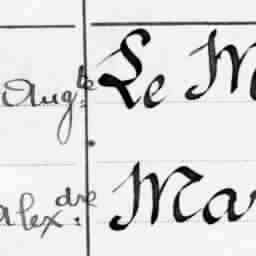 Aug.te Le M
Alex.dre Mar